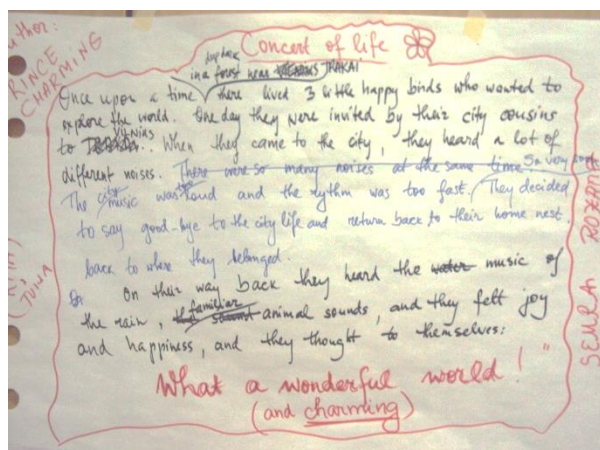 Author:
PRINCE
CHARMING
Concert of life
deep back
in a forest near TRAKAI
Once upon a time, there lived 3 little happy birds who wanted to
explore the world. One day they were invited by their city cousins
to VILNIUS. When they came to the city, they heard a lot of
different noises. There were so many noises at the same time. So very
The city music was too loud and the rhythm was too fast. They decided
to say good-bye to the city life and return back to their home nest.
back to where they belonged.
On their way back they heard the water music of
the rain, the familiar sound animal sounds, and they felt joy
and happiness, and they thought to themselves:
What a wonderful world!"
(and charming)